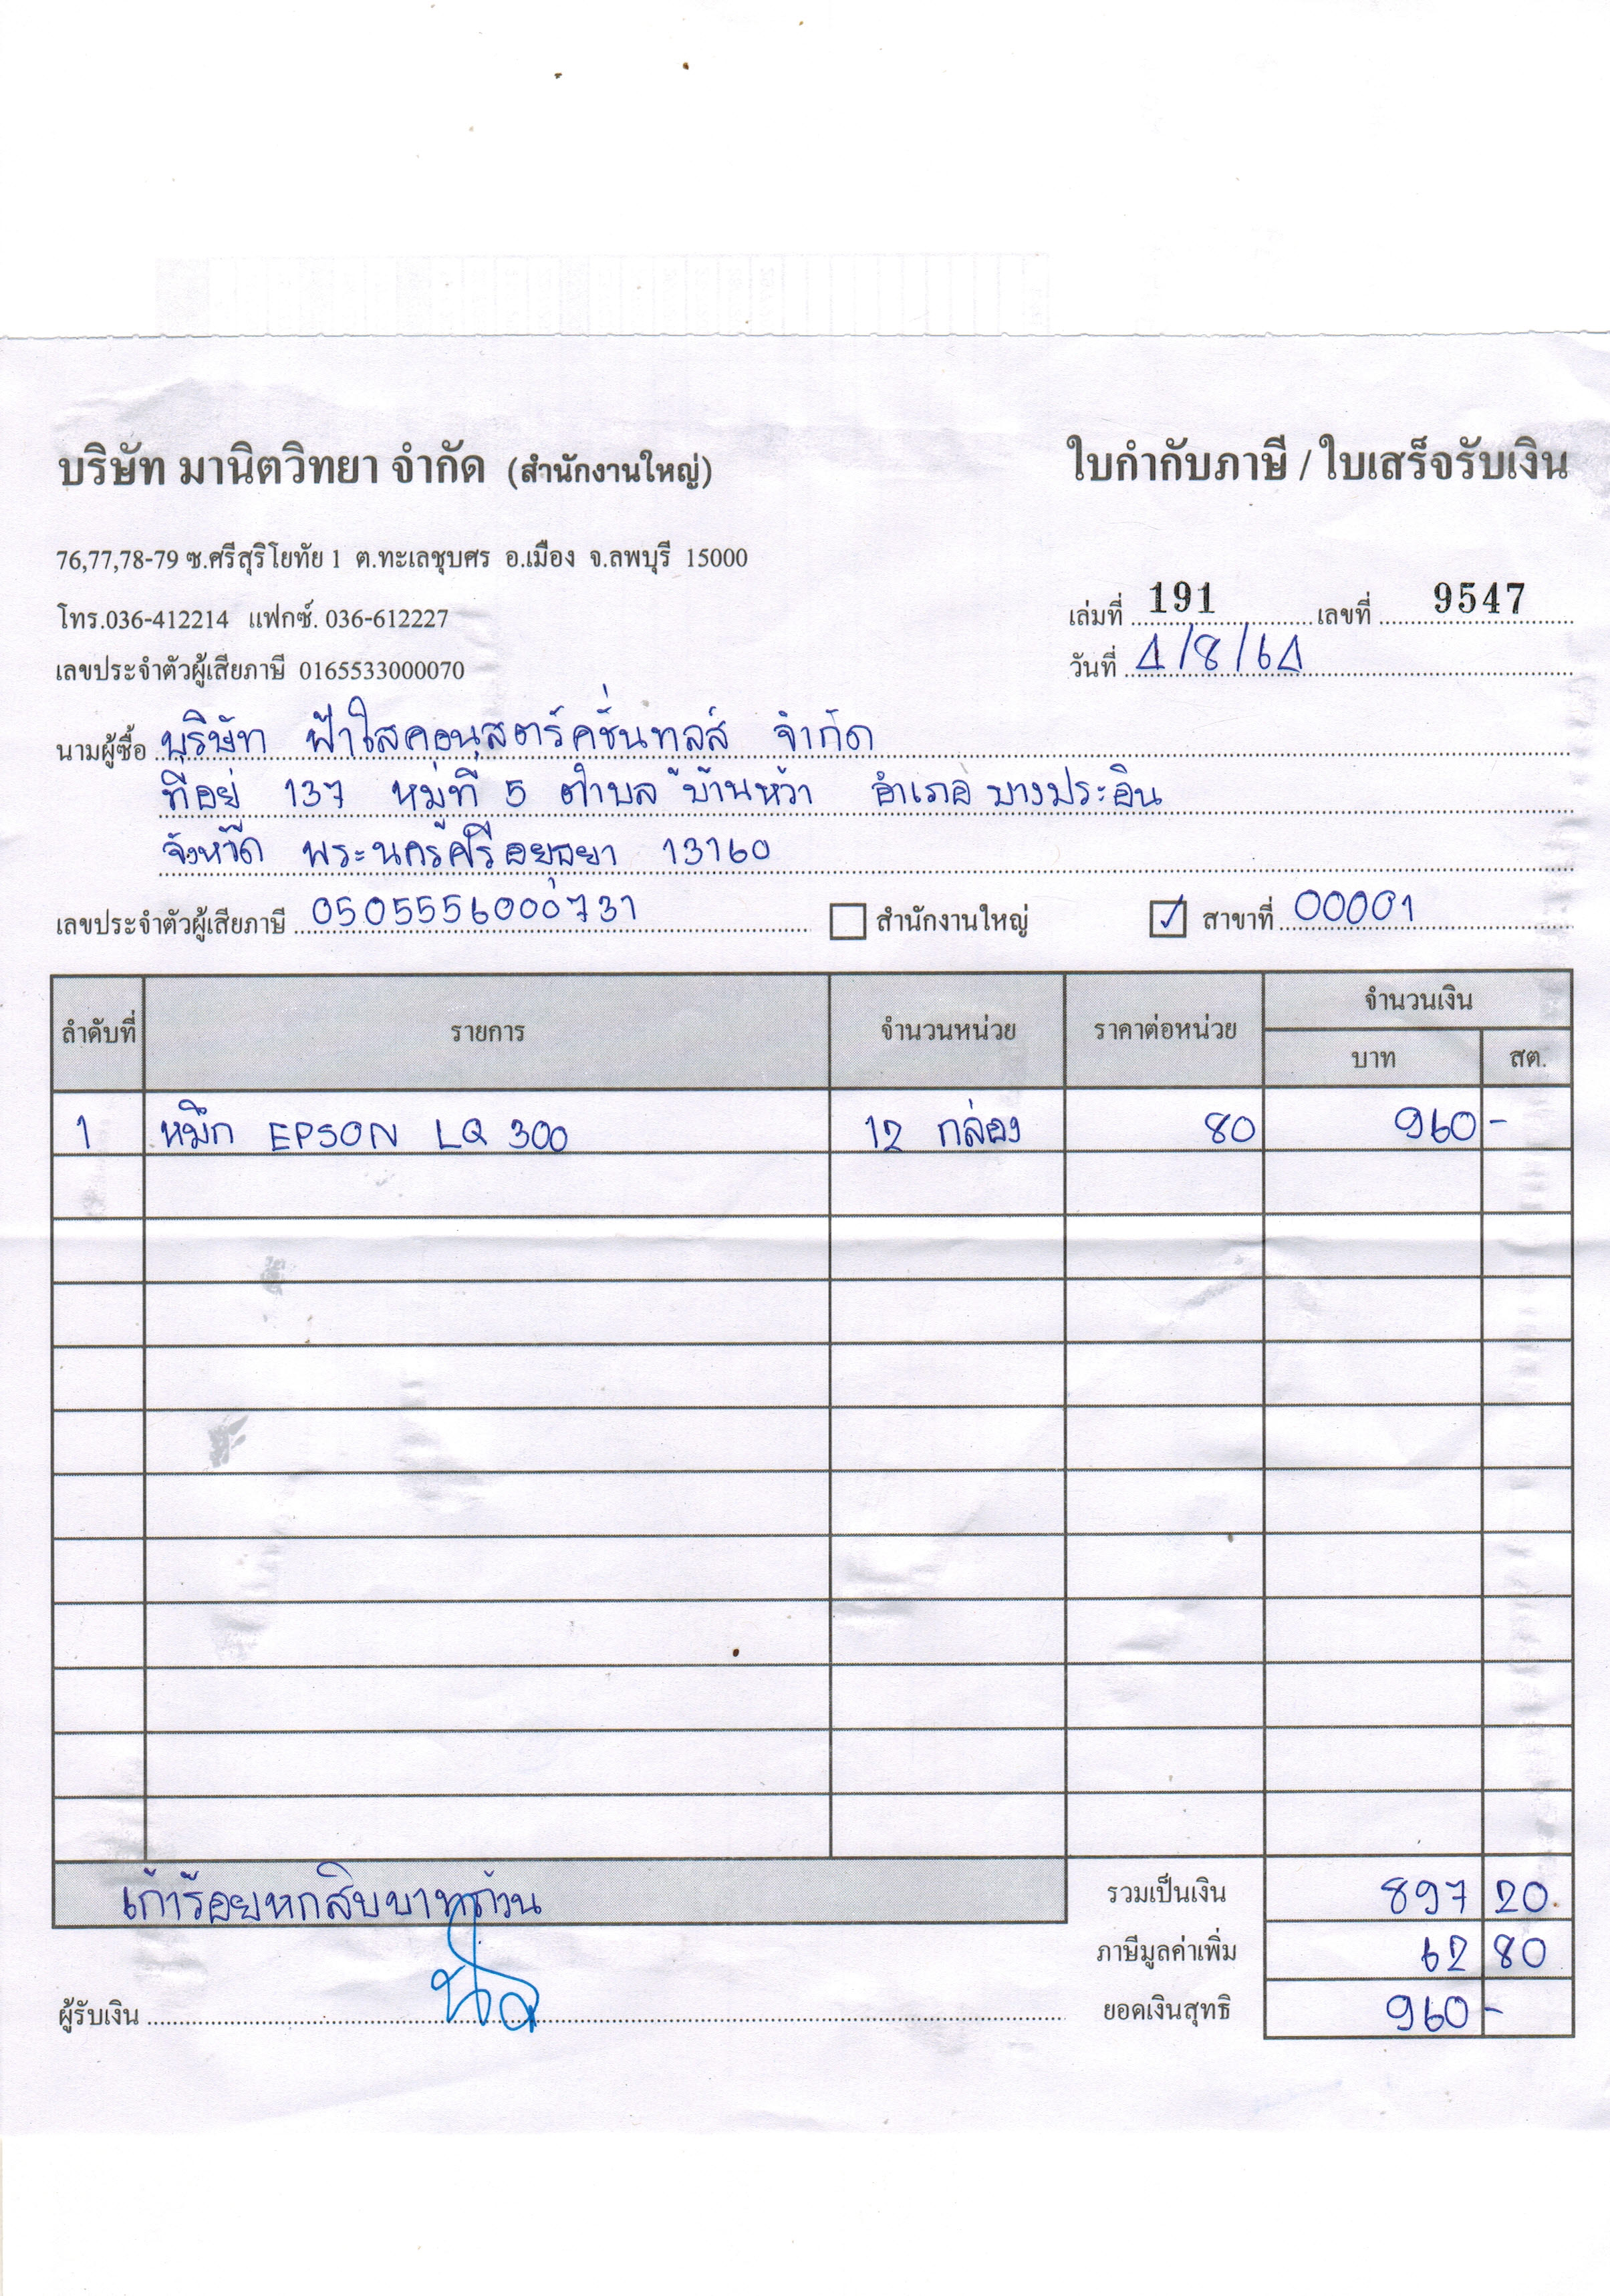 บริษัท มานิตวิทยา จำกัด (สำนักงานใหญ่)
ใบกำกับภาษี / ใบเสร็จรับเงิน
76,77,78-79 ซ.ศรีสุริโยทัย 1 ต.ทะเลชุบศร อ.เมือง จ.ลพบุรี 15000
โทร.036-412214 แฟกซ์. 036-612227
เล่มที่ 191 เลขที่ 9547
เลขประจำตัวผู้เสียภาษี 0165533000070
วันที่ 4/8/64
นามผู้ซื้อ บริษัท ฟ้าใสคอนสตรัคชั่นทูลส์ จำกัด
ที่อยู่ 137 หมู่ที่ 5 ตำบล บ้านหว้า อำเภอ บางปะอิน
จังหวัด พระนครศรีอยุธยา 13160
เลขประจำตัวผู้เสียภาษี 0505556000731 สำนักงานใหญ่ ✓ สาขาที่ 00001
ลำดับที่ รายการ จำนวนหน่วย ราคาต่อหน่วย จำนวนเงิน
บาท สต.
1 หมึก EPSON LQ 300 12 กล่อง 80 960 -
เก้าร้อยหกสิบบาทถ้วน
รวมเป็นเงิน 897 20
ภาษีมูลค่าเพิ่ม 62 80
ผู้รับเงิน
ยอดเงินสุทธิ 960 -